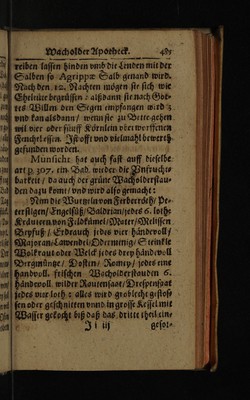 Wacholder Apotheck. 481
reiben lassen hinden und die Linden mit der
Salben so Agrippæ Salb genand wird.
Nach den 12. Nachten mögen sie sich wie
Eheleüt begrüssen: alßdann sie nach Got-
tes Willen den Segen empfangen wird
und kan alsdann/ wenn sie zu Bette gehen
wil vier oder fünff Körnlein oberworffenen
Fenchel essen. Ist offt und vielmahl bewerth
gefunden worden.
Munsicht hat auch fast auff dieselbe
art p. 307. ein Bad, wider die Unfrucht-
barkeit/ da auch der grüne Wacholderstau-
den dazu komt/ und wird also gemacht:
Nim die Wurtzeln von Ferberröth/ Pe-
tersiligen/ Engelsüß/ Baldrian/ jedes 6. loth:
Kräuter von Feldkümel/ Mater/ Melissen
Beyfuß/ Erbraute jedes vier händvoll/
Majoran/ Lavendel/ Odermenig/ Steinklee
Wolkraut oder Welck jedes drey händvoll
Bergmüntze/ Dosten/ Romey/ jedes eine
handvoll, frischen Wacholderstauden 6.
händvoll, wilder Rautensaat/ Drespensaat
jedes vier loth: alles wird gröblecht gestos-
sen oder geschnitten und in grosse Kessel mit
Wasser gekocht biß daß das dritte theil ein-
Ii iij gesot-